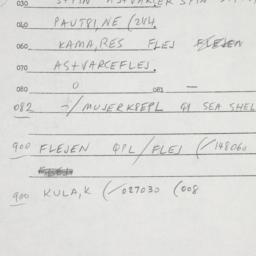 030
040 PAUTSI, NE (244
060 KAMA, RES FLES FLEJEN
070 ASTVARCEFLES.
080 0 081 —
082 -/MUJERKREPL 41 SEA SHEL
900 FLEJEN QPL/FLEJ (/148060
900 KULA, K (/027030 (008